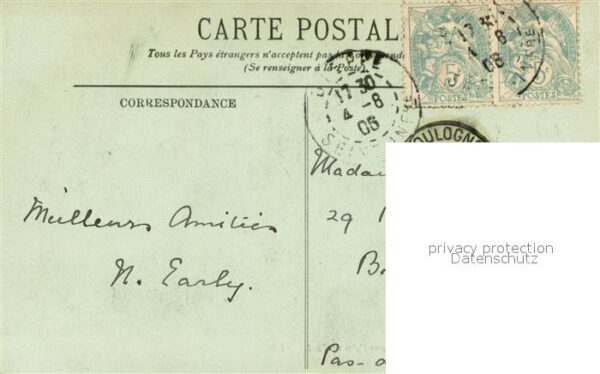 CARTE POSTAL
Tous les Pays étrangers n'acceptent pas la
(Se renseigner à la Poste)
CORRESPONDANCE
17 30
4 - 8
06
17 30
8
06
5
POSTES
POSTES
BOULOGNE
Madam
29
Meilleures Amitiés
B
N. Early.
Pas-d
privacy protection
Datenschutz